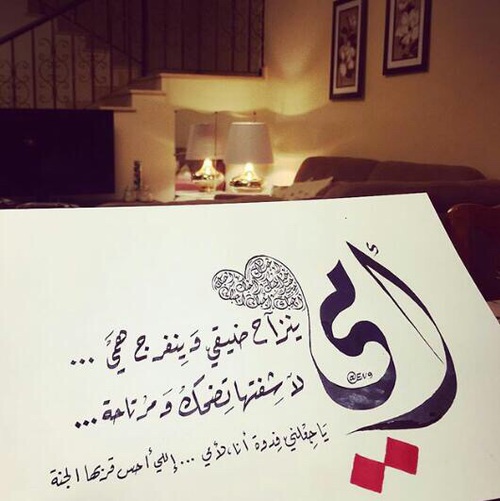 أمي
ينزآح ضيقي وَينفرج همّي ...
لآ شفتها تضحك وَ مرتاحة ...
يَا جعلني فِدوة أنا، لأمي ... إللي أحس قربها الجنة
@EV9